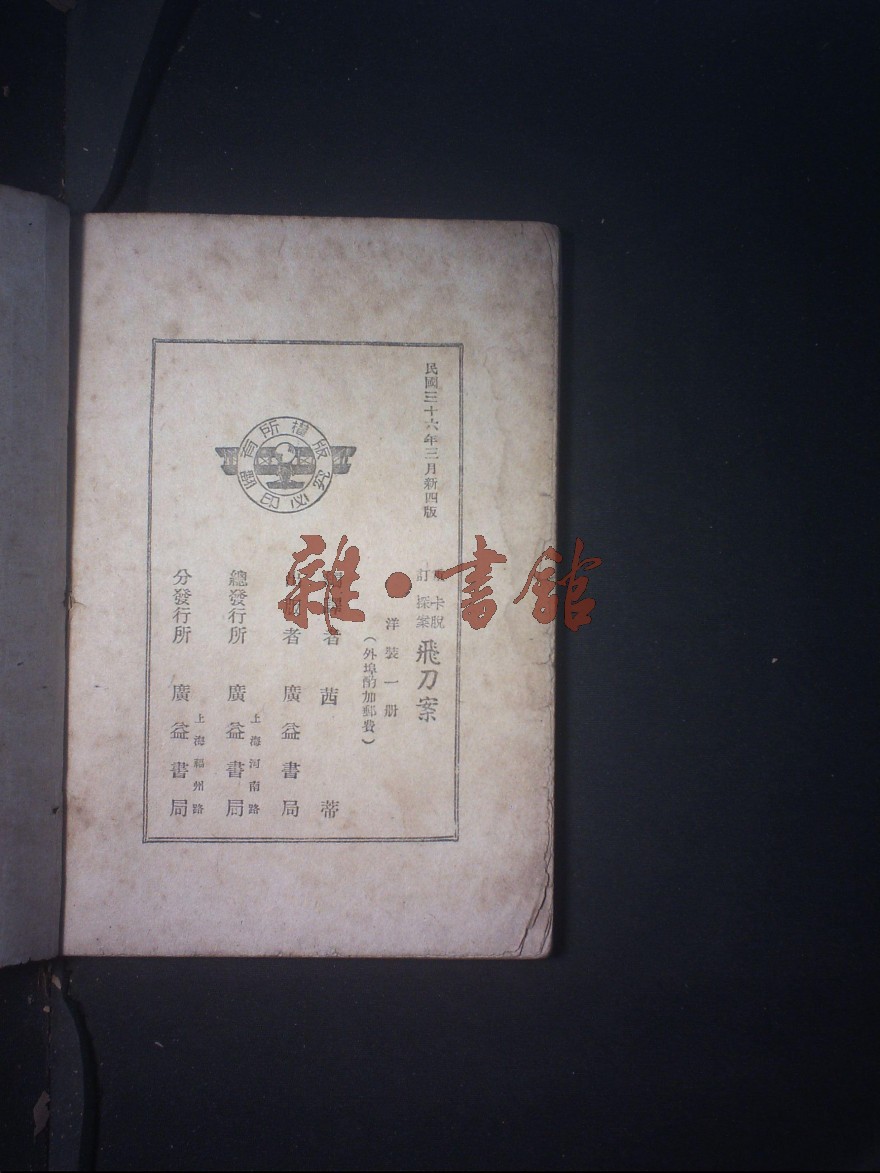 民國三十六年三月新四版
訂 卡脫探案 飛刀案
洋裝一册
（外埠酌加郵費）
者 茜蒂
者 廣益書局
總發行所 上海河南路 廣益書局
分發行所 上海福州路 廣益書局
版權所有
翻印必究
雜·書館